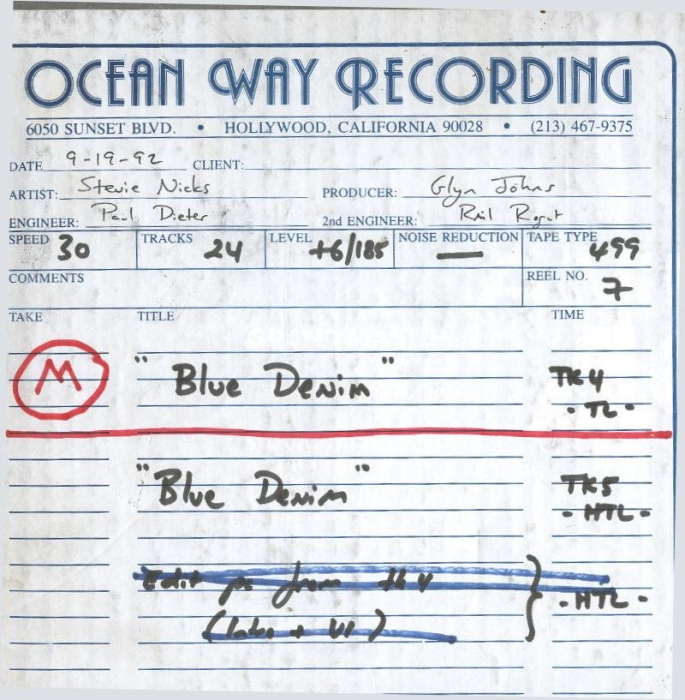 OCEAN WAY RECORDING
6050 SUNSET BLVD. • HOLLYWOOD, CALIFORNIA 90028 • (213) 467-9375
DATE 9-19-92 CLIENT:
ARTIST: Stevie Nicks PRODUCER: Glyn Johns
ENGINEER: Paul Dieter 2nd ENGINEER:
SPEED 30 TRACKS 24 LEVEL +6/185 NOISE REDUCTION — TAPE TYPE 499
COMMENTS REEL NO. 7
TAKE TITLE TIME
M "Blue Denim" TK4
- TL -
"Blue Denim" TK5
- HTL -
Edit pc from tk 4
- HTL -
( + V1)